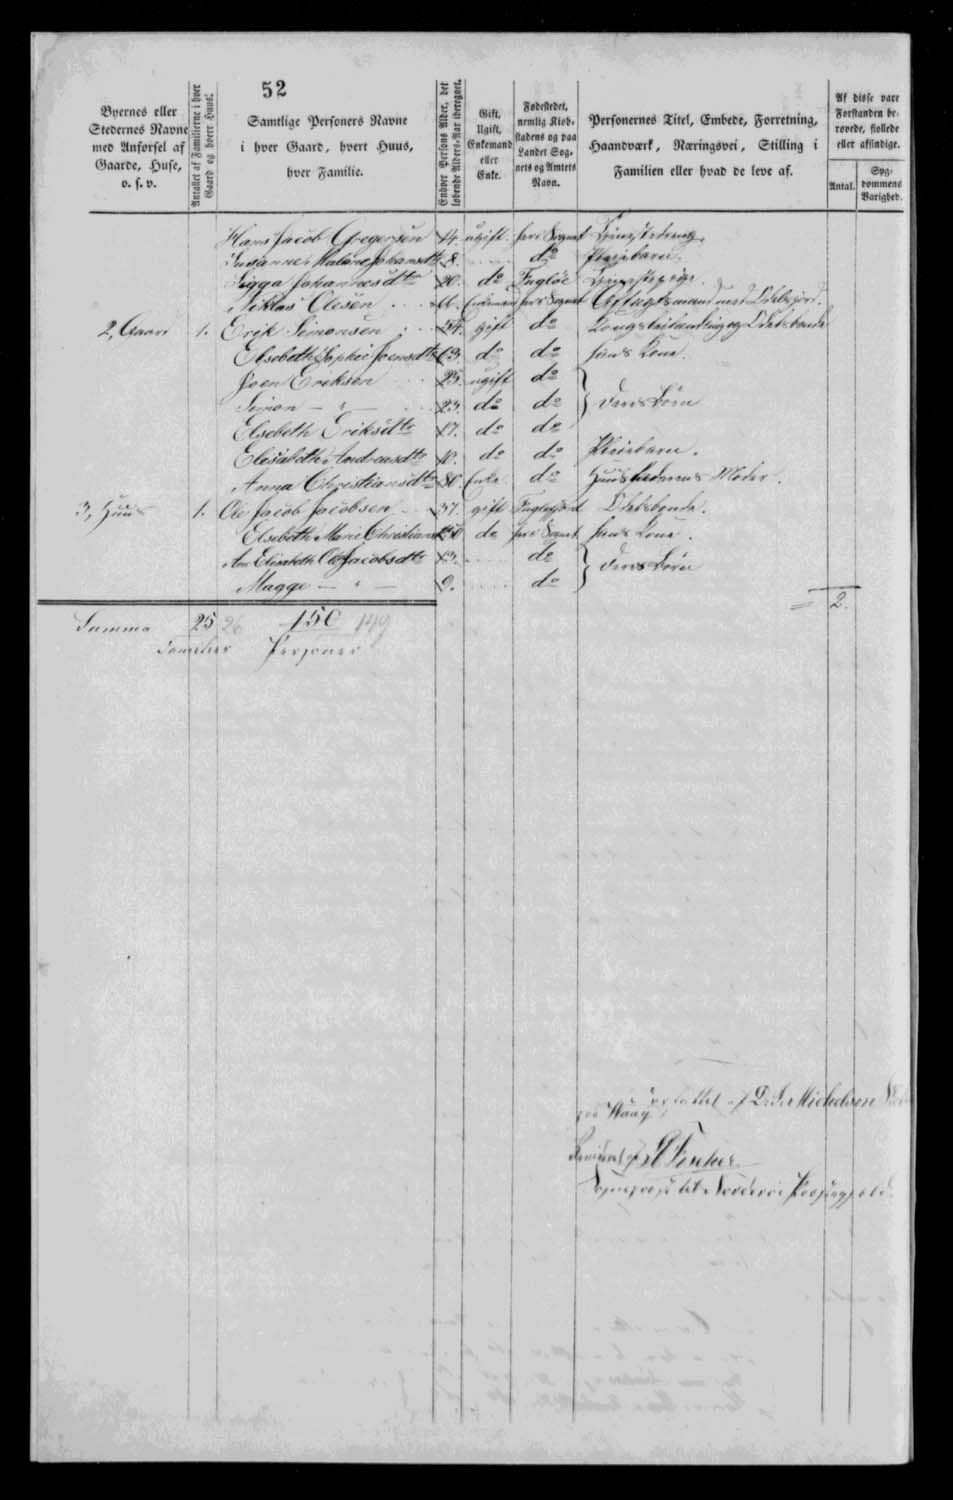 52
Byernes eller Stedernes Navne med Anførsel af Gaarde, Huse, o. s. v.
Antallet af Familierne i hver Gaard og hvert Huus.
Samtlige Personers Navne i hver Gaard, hvert Huus, hver Familie.
Enhver Persons Alder, det løbende Alders-Aar iberegnet.
Gift, Ugift, Enkemand eller Enke.
Fødestedet, nemlig Kiøbstadens og paa Landet Sognets og Amtets Navn.
Personernes Titel, Embede, Forretning, Haandværk, Næringsvei, Stilling i Familien eller hvad de leve af.
Af disse vare Forstanden berøvede, fiollede eller afsindige.
Antal.
Sygdommens Varighed.
Hans Jacob Gregersen 14. ugift. her i Sognet Tjenestedreng.
Susanne Malene Johansdtr 8. do Pleiebarn.
Sigga Johannesdtr 20. do Fuglöe Tjenestepige.
Niklas Olesen 66. Enkemand her i Sognet Aftægtsmand med Odelsjord.
2, Gaard 1. Erik Simonsen 54. gift do Kongsbeilending og Odelsbonde
Elsebeth Sophie Joensdtr 63. do do hans Kone.
Joen Eriksen 25. ugift do
Simon — " — 23. do do } deres Börn
Elsebeth Eriksdtr 17. do do
Elisabeth Andreasdtr 10. do do Pleiebarn.
Anna Christiansdtr 80. Enke do Huusfaderens Moder.
3, Huus 1. Ole Jacob Jacobsen 37. gift Fuglefjord Odelsbonde.
Elsebeth Marie Christiansdtr do her i Sognet hans Kone.
Ane Elisabeth Ole Jacobsdtr 13. do } deres Börn
Magge — " — 9. do
= 2.
Summa 25 26 150 149
Familier Personer
forfattet af D. J. Michelsen
paa Waag
Revideret af Fischer
Sognepræst til Norderöe Præstegjeld.